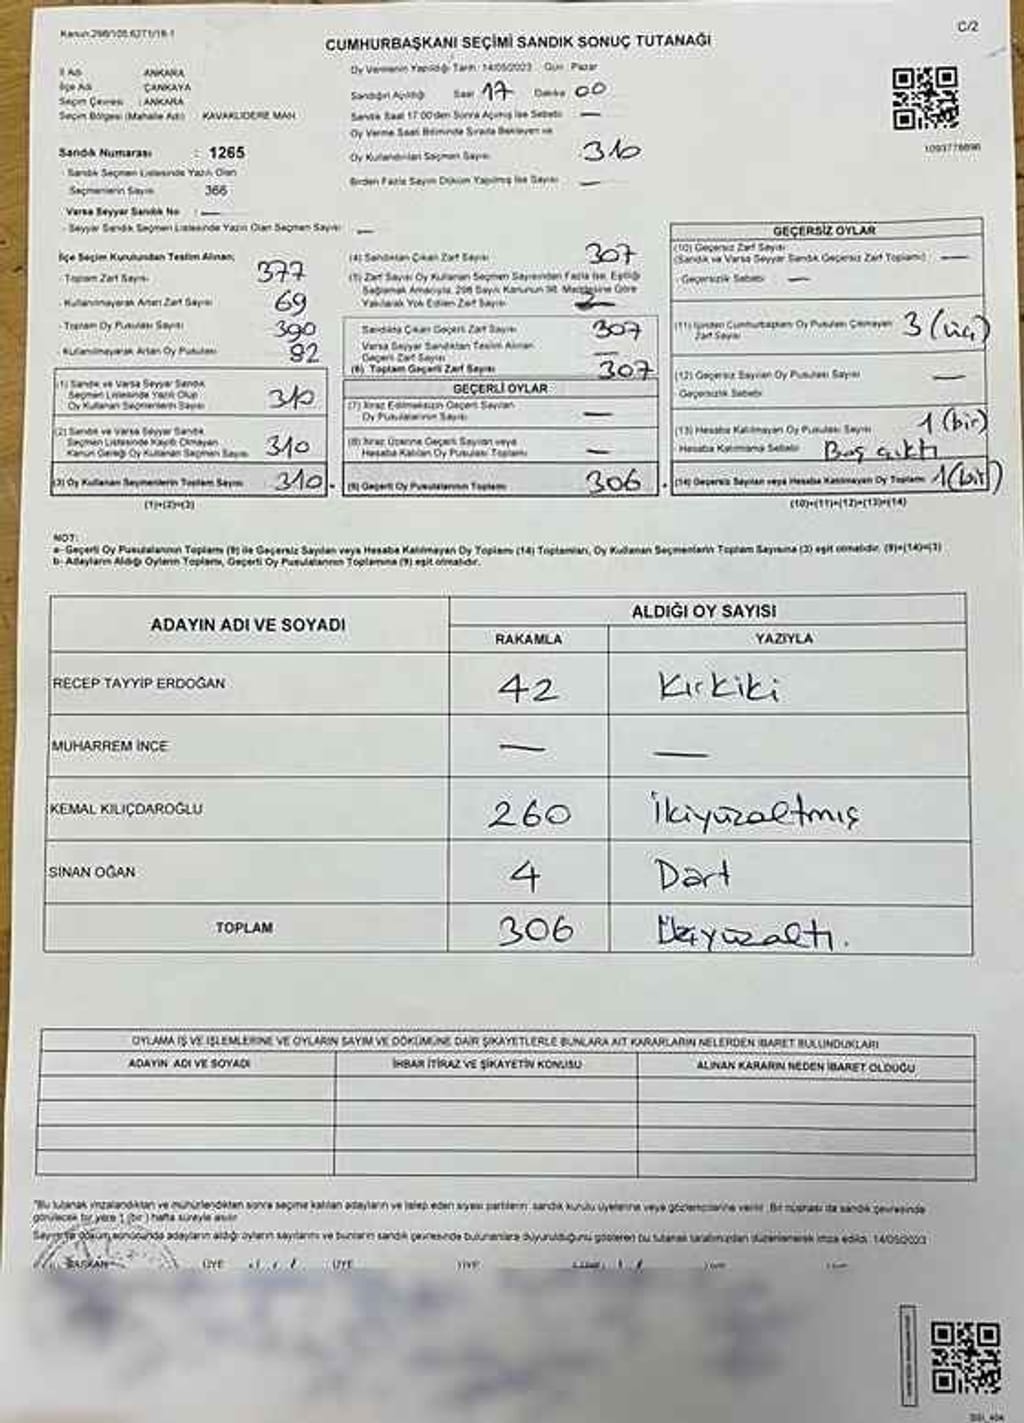 Kanun:298/105.6271/16-1
C/2
CUMHURBAŞKANI SEÇİMİ SANDIK SONUÇ TUTANAĞI
İl Adı : ANKARA
İlçe Adı : ÇANKAYA
Seçim Çevresi : ANKARA
Seçim Bölgesi (Mahalle Adı) : KAVAKLIDERE MAH.
Sandık Numarası : 1265
Sandık Seçmen Listesinde Yazılı Olan
Seçmenlerin Sayısı 366
Varsa Seyyar Sandık No : —
- Seyyar Sandık Seçmen Listesinde Yazılı Olan Seçmen Sayısı —
Oy Vermenin Yapıldığı Tarih: 14/05/2023 Gün : Pazar
Sandığın Açıldığı Saat 17 Dakika 00
Sandık Saat 17:00'den Sonra Açılmış İse Sebebi —
Oy Verme Saati Bitiminde Sırada Bekleyen ve
Oy Kullandırılan Seçmen Sayısı 310
Birden Fazla Sayım Döküm Yapılmış İse Sayısı —
1093776696
İlçe Seçim Kurulundan Teslim Alınan;
- Toplam Zarf Sayısı 377
- Kullanılmayarak Artan Zarf Sayısı 69
- Toplam Oy Pusulası Sayısı 390
- Kullanılmayarak Artan Oy Pusulası 82
(1) Sandık ve Varsa Seyyar Sandık
Seçmen Listesinde Yazılı Olup
Oy Kullanan Seçmenlerin Sayısı 310
(2) Sandık ve Varsa Seyyar Sandık
Seçmen Listesinde Kayıtlı Olmayan
Kanun Gereği Oy Kullanan Seçmen Sayısı 310
(3) Oy Kullanan Seçmenlerin Toplam Sayısı 310
(1)+(2)=(3)
(4) Sandıktan Çıkan Zarf Sayısı 307
(5) Zarf Sayısı Oy Kullanan Seçmen Sayısından Fazla İse, Eşitliği
Sağlamak Amacıyla, 298 Sayılı Kanunun 98. Maddesine Göre
Yakılarak Yok Edilen Zarf Sayısı
Sandıkta Çıkan Geçerli Zarf Sayısı 307
Varsa Seyyar Sandıktan Teslim Alınan
Geçerli Zarf Sayısı —
(6) Toplam Geçerli Zarf Sayısı 307
GEÇERLİ OYLAR
(7) İtiraz Edilmeksizin Geçerli Sayılan
Oy Pusulalarının Sayısı —
(8) İtiraz Üzerine Geçerli Sayılan veya
Hesaba Katılan Oy Pusulası Toplamı —
(9) Geçerli Oy Pusulalarının Toplamı 306
GEÇERSİZ OYLAR
(10) Geçersiz Zarf Sayısı
(Sandık ve Varsa Seyyar Sandık Geçersiz Zarf Toplamı) —
- Geçersizlik Sebebi —
(11) İçinden Cumhurbaşkanı Oy Pusulası Çıkmayan
Zarf Sayısı 3 (üç)
(12) Geçersiz Sayılan Oy Pusulası Sayısı —
- Geçersizlik Sebebi
(13) Hesaba Katılmayan Oy Pusulası Sayısı 1 (bir)
- Hesaba Katılmama Sebebi Boş çıktı
(14) Geçersiz Sayılan veya Hesaba Katılmayan Oy Toplamı 1 (bir)
(10)+(11)+(12)+(13)=(14)
NOT:
a- Geçerli Oy Pusulalarının Toplamı (9) ile Geçersiz Sayılan veya Hesaba Katılmayan Oy Toplamı (14) Toplamları, Oy Kullanan Seçmenlerin Toplam Sayısına (3) eşit olmalıdır. (9)+(14)=(3)
b- Adayların Aldığı Oyların Toplamı, Geçerli Oy Pusulalarının Toplamına (9) eşit olmalıdır.
ADAYIN ADI VE SOYADI
ALDIĞI OY SAYISI
RAKAMLA YAZIYLA
RECEP TAYYİP ERDOĞAN 42 Kırkiki
MUHARREM İNCE — —
KEMAL KILIÇDAROĞLU 260 İkiyüzaltmış
SİNAN OĞAN 4 Dört
TOPLAM 306 Üçyüzaltı.
OYLAMA İŞ VE İŞLEMLERİNE VE OYLARIN SAYIM VE DÖKÜMÜNE DAİR ŞİKAYETLERLE BUNLARA AİT KARARLARIN NELERDEN İBARET BULUNDUKLARI
ADAYIN ADI VE SOYADI İHBAR İTİRAZ VE ŞİKAYETİN KONUSU ALINAN KARARIN NEDEN İBARET OLDUĞU
"Bu tutanak imzalandıktan ve mühürlendikten sonra seçime katılan adayların ve talep eden siyasi partilerin sandık kurulu üyelerine veya gözlemcilerine verilir. Bir nüshası da sandık çevresinde
görülecek bir yere 1 (bir) hafta süreyle asılır.
Sayım ve döküm sonucunda adayların aldığı oyların sayılarını ve bunların sandık çevresinde bulunanlara duyurulduğunu gösteren bu tutanak tarafımızdan düzenlenerek imza edildi. 14/05/2023
BAŞKAN ÜYE ÜYE ÜYE